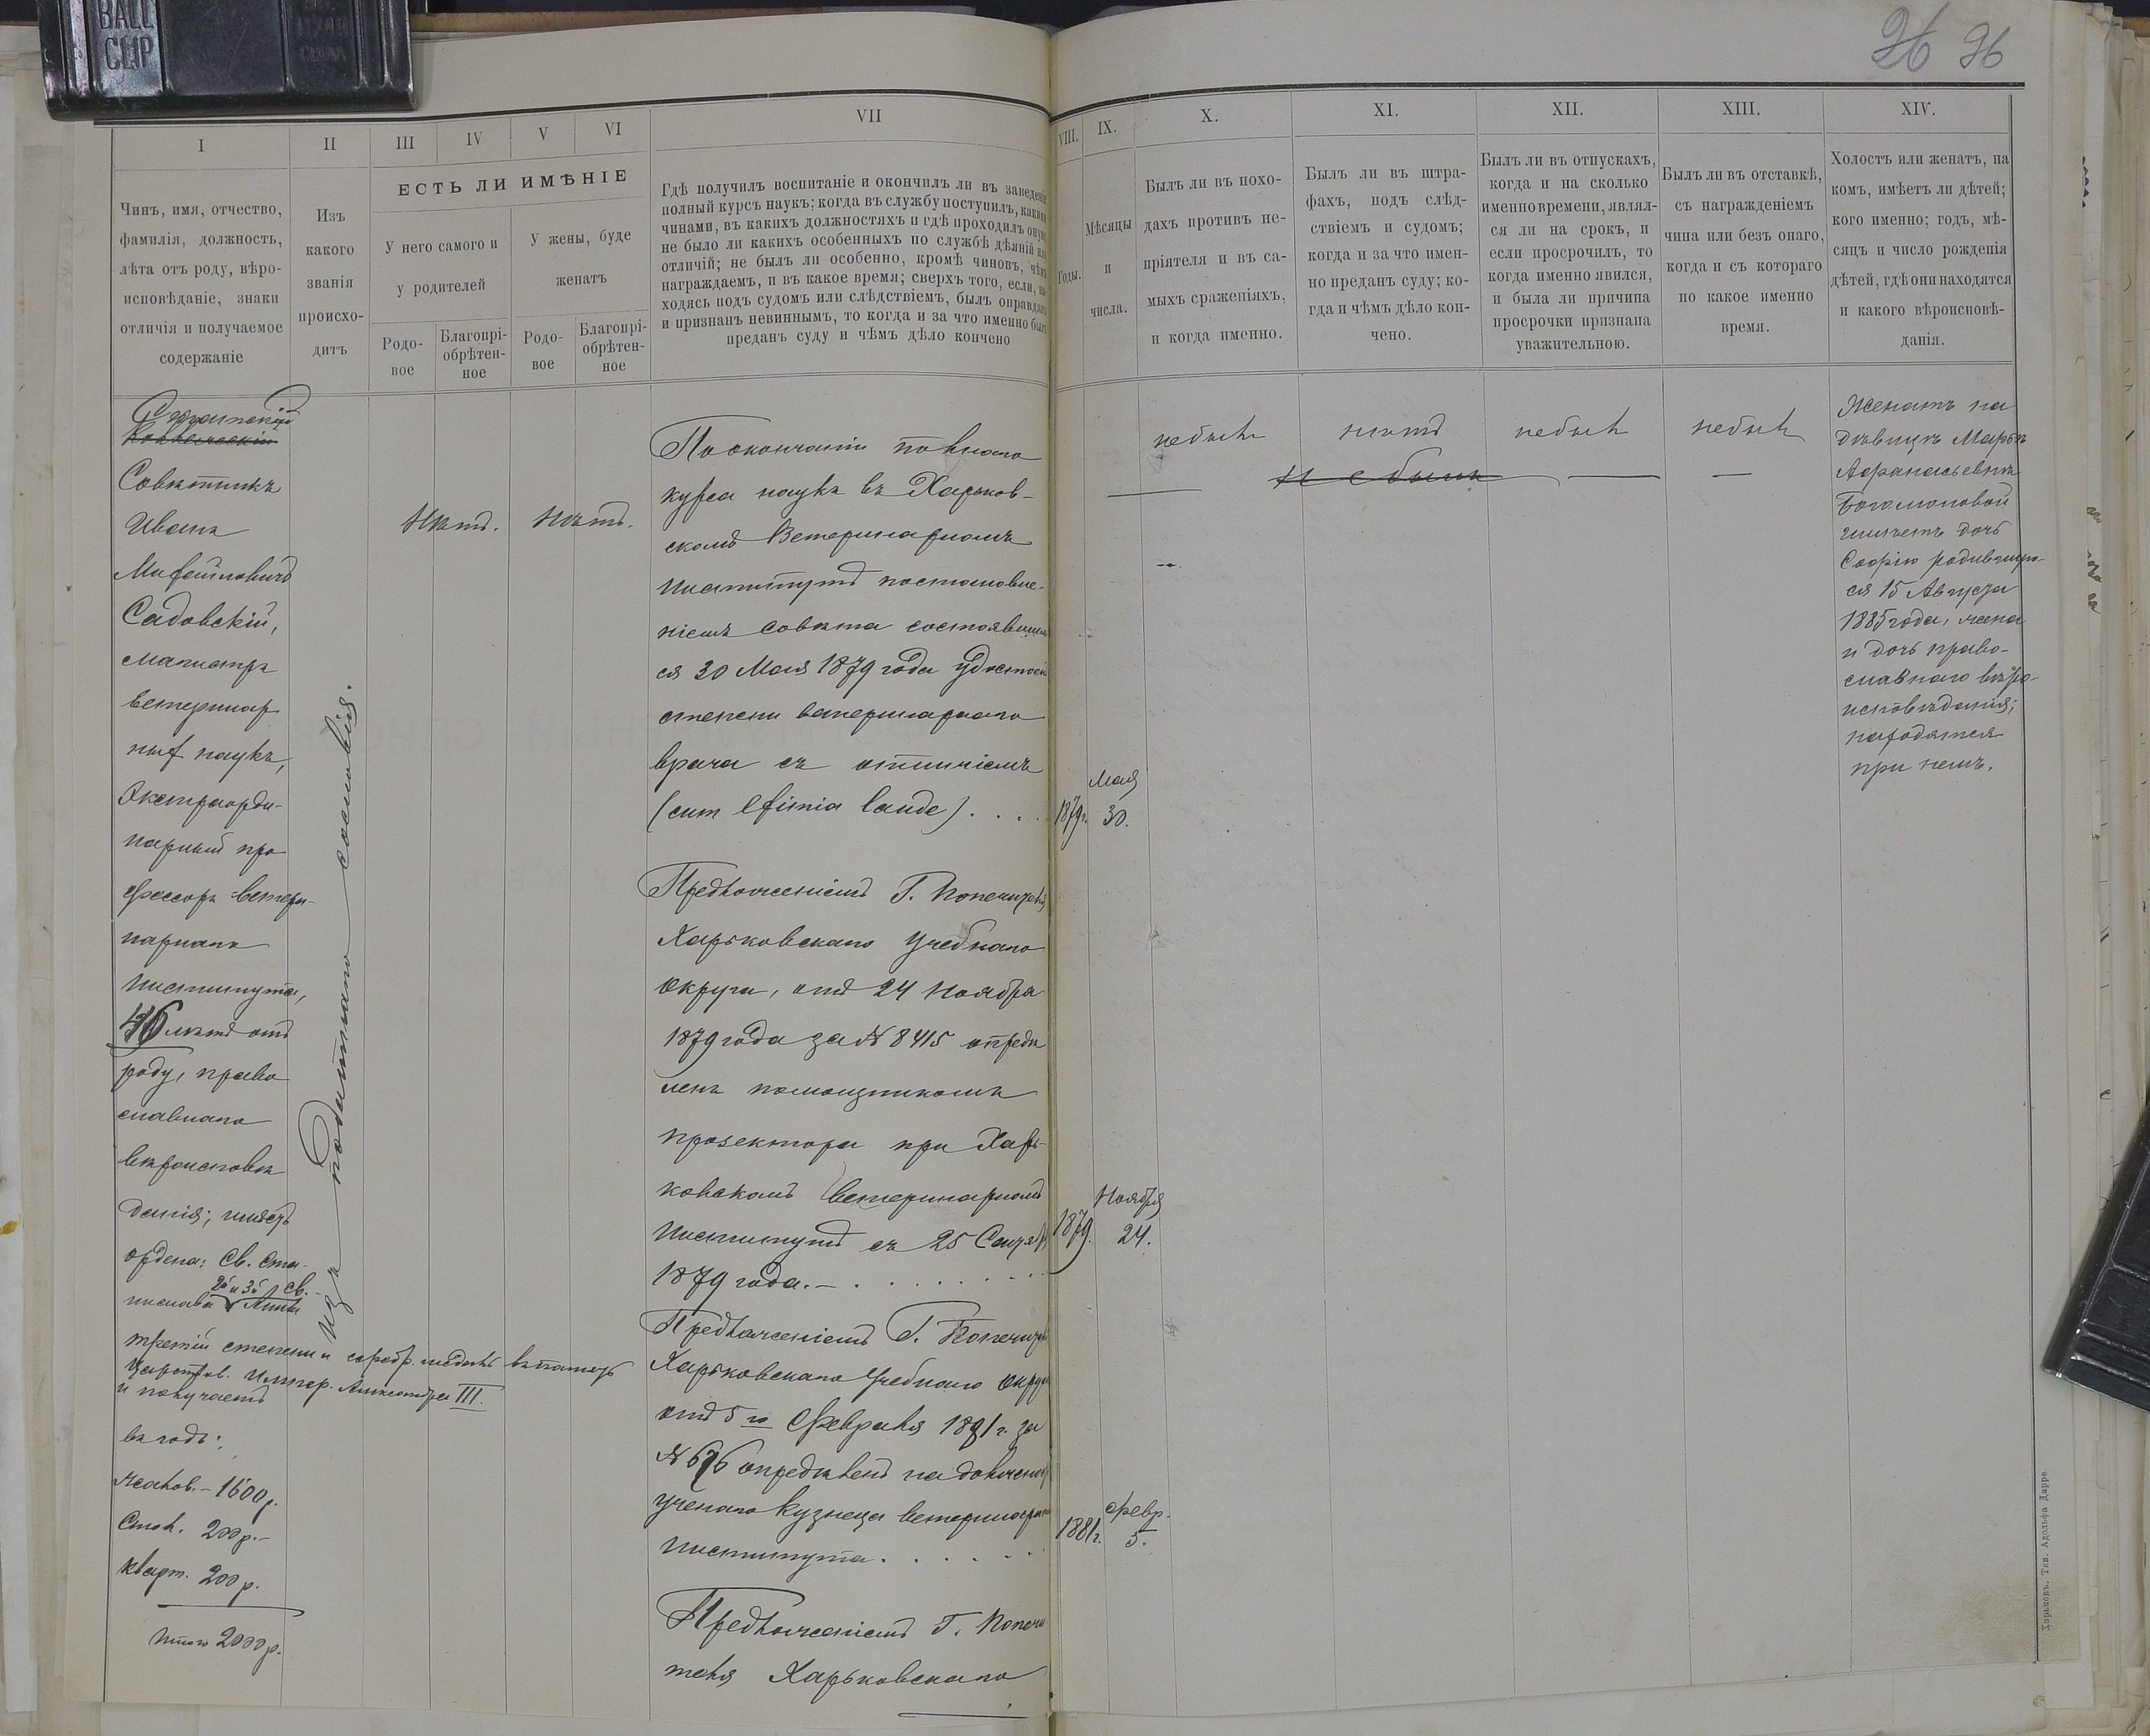 BALL
CLIP
26 96
I
Чинъ, имя, отчество,
фамилія, должность,
лѣта отъ роду, вѣро-
исповѣданіе, знаки
отличія и получаемое
содержаніе
II
Изъ
какого
званія
происхо-
дитъ
III IV V VI
ЕСТЬ ЛИ ИМѢНІЕ
У него самого и
у родителей
У жены, буде
женатъ
Родо-
вое
Благопрі-
обрѣтен-
ное
Родо-
вое
Благопрі-
обрѣтен-
ное
VII
Гдѣ получилъ воспитаніе и окончилъ ли въ заведеніи
полный курсъ наукъ; когда въ службу поступилъ, какими
чинами, въ какихъ должностяхъ и гдѣ проходилъ оную;
не было ли какихъ особенныхъ по службѣ дѣяній или
отличій; не былъ ли особенно, кромѣ чиновъ, чѣмъ
награждаемъ, и въ какое время; сверхъ того, если, на-
ходясь подъ судомъ или слѣдствіемъ, былъ оправданъ
и признанъ невиннымъ, то когда и за что именно былъ
преданъ суду и чѣмъ дѣло кончено
VIII.
Годы.
IX.
Мѣсяцы
и
числа.
X.
Былъ ли въ похо-
дахъ противъ не-
пріятеля и въ са-
мыхъ сраженіяхъ,
и когда именно.
XI.
Былъ ли въ штра-
фахъ, подъ слѣд-
ствіемъ и судомъ;
когда и за что имен-
но преданъ суду; ко-
гда и чѣмъ дѣло кон-
чено.
XII.
Былъ ли въ отпускахъ,
когда и на сколько
именно времени, являл-
ся ли на срокъ, и
если просрочилъ, то
когда именно явился,
и была ли причина
просрочки признана
уважительною.
XIII.
Былъ ли въ отставкѣ,
съ награжденіемъ
чина или безъ онаго,
когда и съ котораго
по какое именно
время.
XIV.
Холостъ или женатъ, на
комъ, имѣетъ ли дѣтей;
кого именно; годъ, мѣ-
сяцъ и число рожденія
дѣтей, гдѣ они находятся
и какого вѣроисповѣ-
данія.
Коллежскій
Совѣтникъ
Иванъ
Садовскій,
магистръ
ветеринар
ныхъ наукъ,
Экстраорди-
нарный про
фессоръ ветери-
нарнаго
Института,
46 лѣтъ отъ
роду, право
славнаго
вѣроисповѣ
данія; имѣетъ
ордена: Св. Ста-
2й и 3й Св.
нислава Анны
третій степени и серебр. медаль въ память
Царствов. Импер. Александра III.
и получаетъ
въ годъ:
Жалов. - 1600 р.
Стол. 200 р. -
Кварт. 200 р.
Итого 2000 р.
Изъ податнаго сословія.
Нѣтъ. Нѣтъ.
По окончаніи полнаго
курса наукъ въ Харьков-
скомъ Ветеринарномъ
Институтѣ постановле-
ніемъ Совѣта состоявшим
ся 30 Мая 1879 года удостоенъ
степени ветеринарнаго
врача съ отличіемъ
(cum eximia laude) . . . .
1879 г. Мая 30.
Предложеніемъ Г. Попечителя
Харьковскаго Учебнаго
Округа, отъ 24 Ноября
1879 года за № 8415 опредѣ
ленъ помощникомъ
прозектора при Харь-
ковскомъ Ветеринарномъ
Институтѣ съ 25 Сентября
1879 года. - . . . . . . . .
1879. Ноября 24.
Предложеніемъ Г. Попечителя
Харьковскаго Учебнаго Округа
отъ 5го Февраля 1881 г. за
№ 676 опредѣленъ на должность
ученаго Кузнеца ветеринарнаго
Института. . . . . .
1881 г. Февр. 5.
Предложеніемъ Г. Попечи
теля Харьковскаго
не былъ нѣтъ не былъ не былъ
Не былъ
Женатъ на
дѣвицѣ Марьѣ
Афанасьевнѣ
Богомоловой
имѣетъ дочь
Софію родившую-
ся 15 Августа
1885 года, жена
и дочь право-
славнаго вѣро-
исповѣданія;
находятся
при немъ.
Харьковъ. Тип. Адольфа Дарре